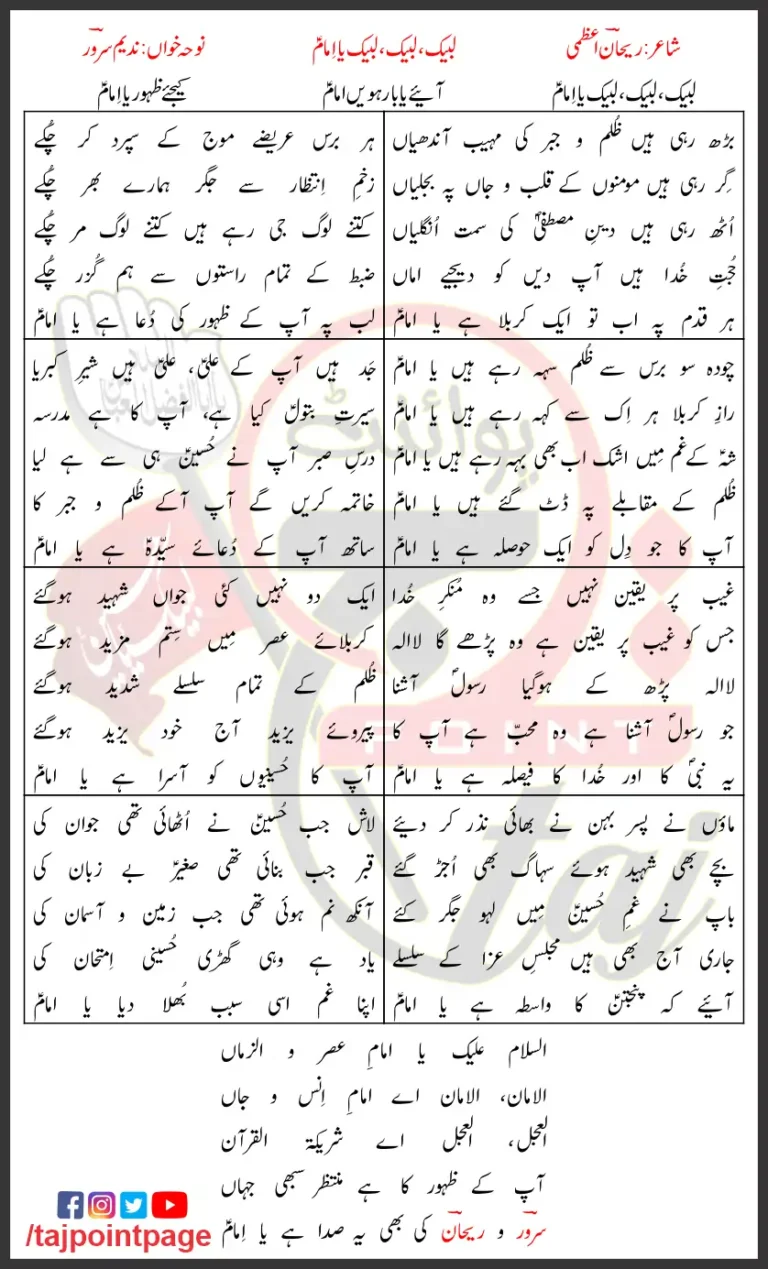 شاعر: ریحان اعظمی
لبیک، لبیک، لبیک یا امامؑ
نوحہ خواں: ندیم سرور
لبیک، لبیک، لبیک یا امامؑ
آیئے یا بارہویں امامؑ
کیجئے ظہور یا امامؑ
بڑھ رہی ہیں ظُلم و جبر کی مہیب آندھیاں
گِر رہی ہیں مومنوں کے قلب و جاں پہ بجلیاں
اُٹھ رہی ہیں دینِ مصطفیٰؐ کی سمت اُنگلیاں
حُجتِ خُدا ہیں آپ دیں کو دیجیے اماں
ہر قدم پہ اب تو ایک کربلا ہے یا امامؑ
ہر برس عریضے موج کے سپرد کر چُکے
زخمِ اِنتظار سے جگر ہمارے بھر چُکے
کتنے لوگ جی رہے ہیں کتنے لوگ مر چُکے
ضبط کے تمام راستوں سے ہم گُزر چُکے
لب پہ آپ کے ظہور کی دُعا ہے یا امامؑ
چودہ سو برس سے ظُلم سہہ رہے ہیں یا امامؑ
رازِ کربلا ہر اِک سے کہہ رہے ہیں یا امامؑ
شہؑ کے غم مِیں اشک اب بھی بہہ رہے ہیں یا امامؑ
ظُلم کے مقابلے پہ ڈٹ گئے ہیں یا امامؑ
آپ کا جو دِل کو ایک حوصلہ ہے یا امامؑ
جَد ہیں آپ کے علیؑ، علیؑ ہیں شیرِ کبریا
سیرتِ بتولؑ کیا ہے، آپ کا ہے مدرسہ
درسِ صبر آپ نے حُسینؑ ہی سے ہے لیا
خاتمہ کریں گے آپ آکے ظُلم و جبر کا
ساتھ آپ کے دُعائے سیّدہؑ ہے یا امامؑ
غیب پر یقین نہیں جسے وہ مُنکرِ خُدا
جس کو غیب پر یقین ہے وہ پڑھے گا لاالہ
لاالہ پڑھ کے ہوگیا رسولؐ آشنا
جو رسولؐ آشنا ہے وہ محبّ ہے آپ کا
یہ نبیؐ کا اور خُدا کا فیصلہ ہے یا امامؑ
ایک دو نہیں کئی جواں شہید ہوگئے
کربلائے عصر مِیں سِتم مزید ہوگئے
ظُلم کے تمام سلسلے شدید ہوگئے
پیروئے یزید آج خود یزید ہوگئے
آپ کا حُسینیوں کو آسرا ہے یا امامؑ
ماؤں نے پسر بہن نے بھائی نذر کر دیئے
بچے بھی شہید ہوئے سہاگ بھی اُجڑ گئے
باپ نے غمِ حُسینؑ مِیں لہو جگر کئے
جاری آج بھی ہیں مجلسِ عزا کے سلسلے
آیئے کہ پنجتنؑ کا واسطہ ہے یا امامؑ
لاش جب حُسینؑ نے اُٹھائی تھی جوان کی
قبر جب بنائی تھی صغیرؑ بے زبان کی
آنکھ نم ہوئی تھی جب زمین و آسمان کی
یاد ہے وہی گھڑی حُسینی اِمتحان کی
اپنا غم اسی سبب بُھلا دیا یا امامؑ
السلام علیک یا امامِ عصر و الزماں
الامان، الامان اے امامِ اِنس و جاں
العجل، العجل اے شریکۃ القرآن
آپ کے ظہور کا ہے منتظر سبھی جہاں
سرور و ریحان کی بھی یہ صدا ہے یا اِمامؑ
پوائنٹ
POINT
taj
/tajpointpage